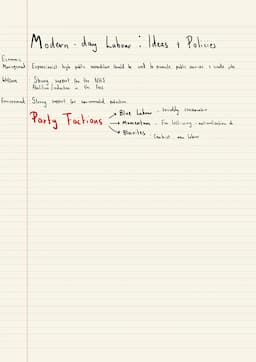 Modern-day Labour: Ideas + Policies
Economic
Management Expansionist high public expenditure should be used to promote public services + create jobs
Welfare Strong support for the NHS
Abolition/reduction in the fees
Environment Strong support for environmental protection
Party Factions
→ Blue Labour - socially conservative
→ Momentum - Far left-wing - nationalisation &
→ Blairites - Centrist, new labour